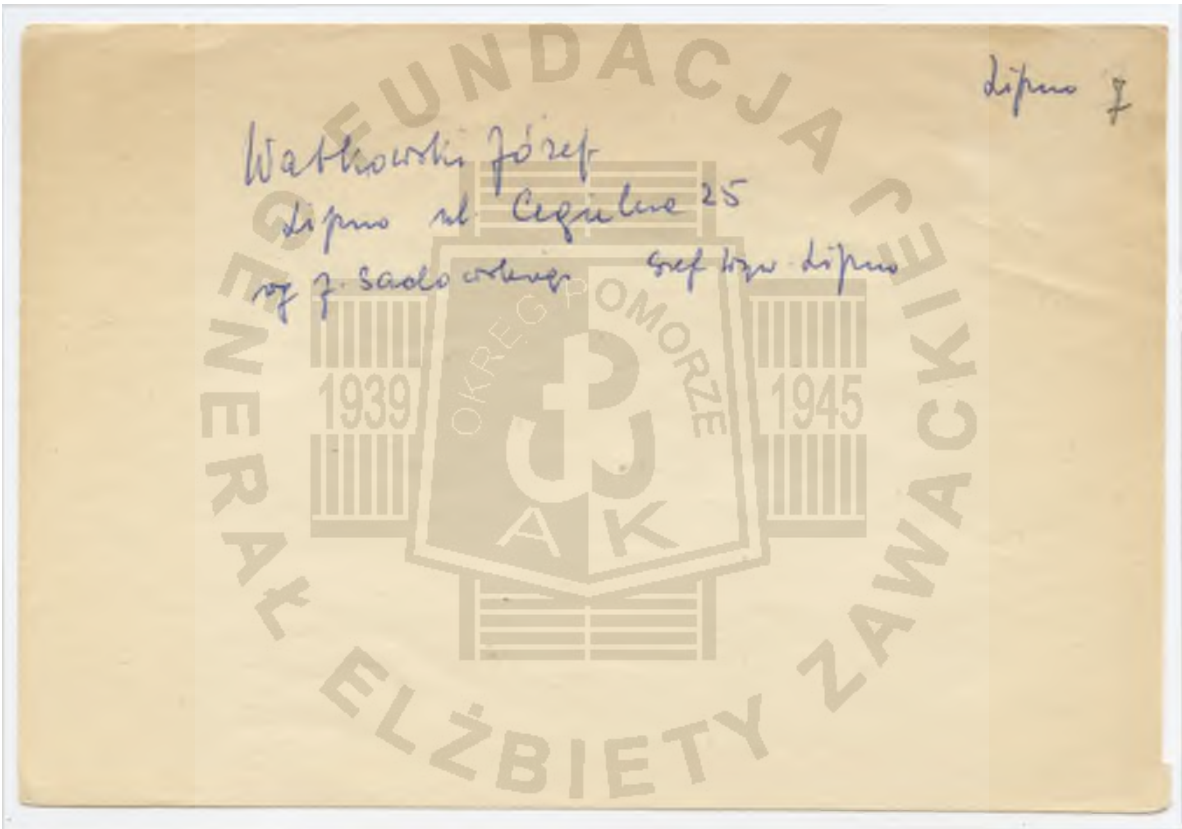 Lipno 7
Watkowski Józef
Lipno ul. Cegielna 25
wg J. Sadowskiego szef Wyw. Lipno
FUNDACJA GENERAŁ ELŻBIETY ZAWACKIEJ
OKRĘG POMORZE
1939 1945
AK